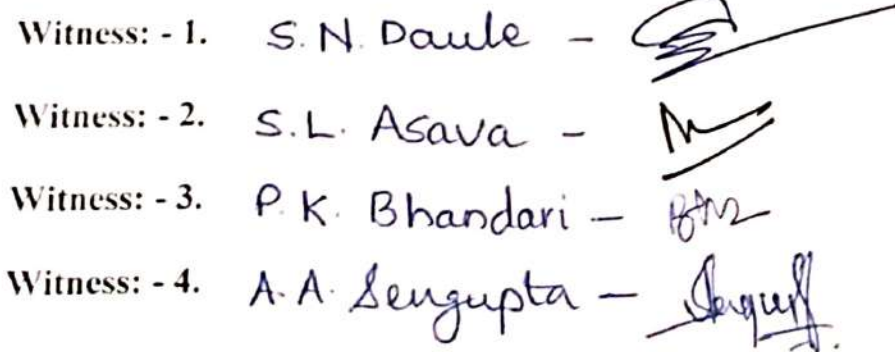 Witness: - 1. S. N. Daule -
Witness: - 2. S. L. Asava -
Witness: - 3. P. K. Bhandari -
Witness: - 4. A. A. Sengupta -